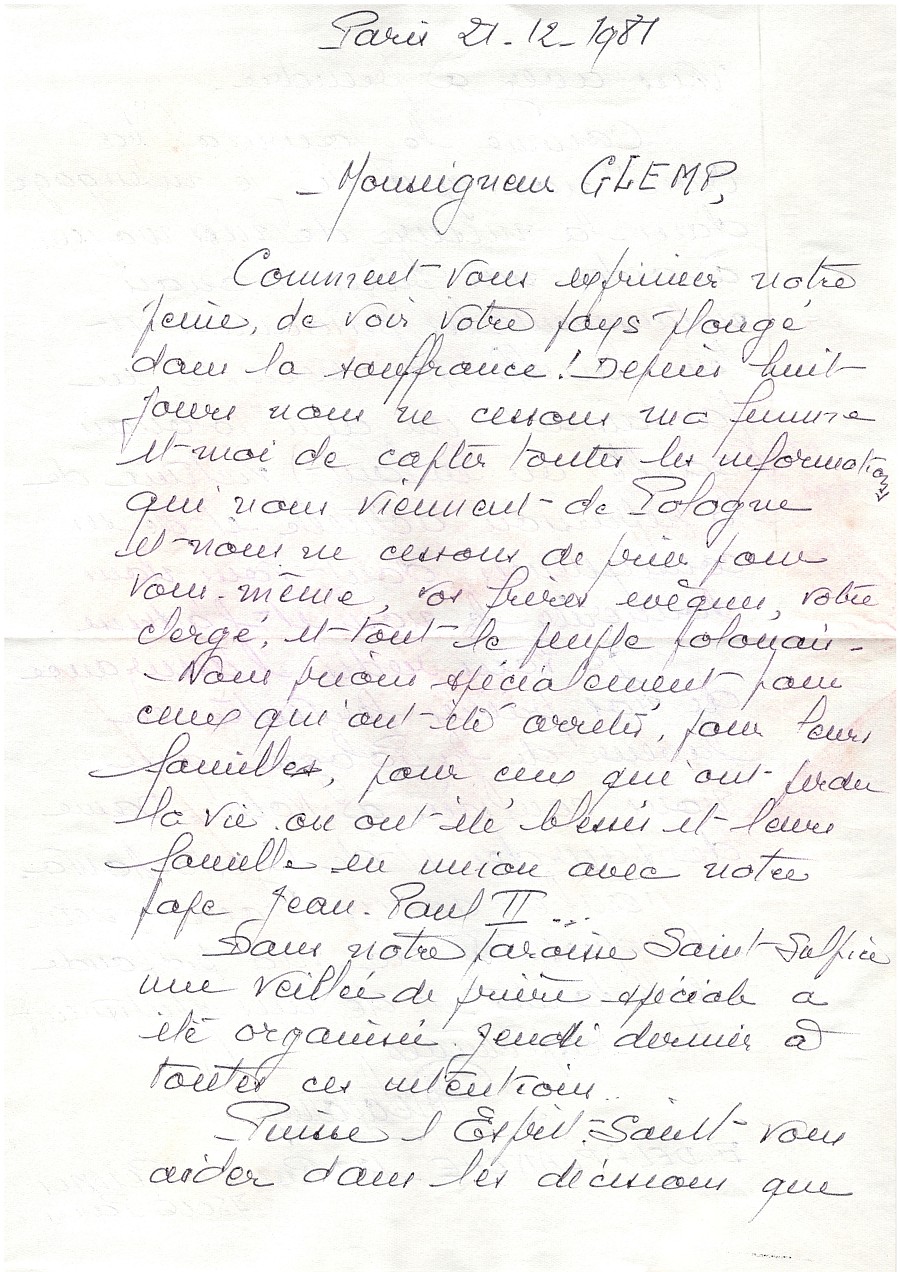 Paris 21-12-1981
Monseigneur GLEMP,
Comment vous exprimer notre
peine, de voir votre pays plongé
dans la souffrance! Depuis huit
jours nous ne cessons ma femme
et moi de capter toutes les informations
qui nous viennent de Pologne
et nous ne cessons de prier pour
vous-même, vos frères evêques, votre
clergé, et tout le peuple polonais -
Nous prions spécialement pour
ceux qui ont été arretés, pour leurs
familles, pour ceux qui ont perdu
la vie ou ont été blessés et leurs
familles en union avec notre
pape Jean-Paul II...
Dans notre paroisse Saint-Sulpice
une veillée de prière spéciale a
été organisée jeudi dernier à
toutes ces intentions..
Puisse l'Esprit-Saint vous
aider dans les décisions que